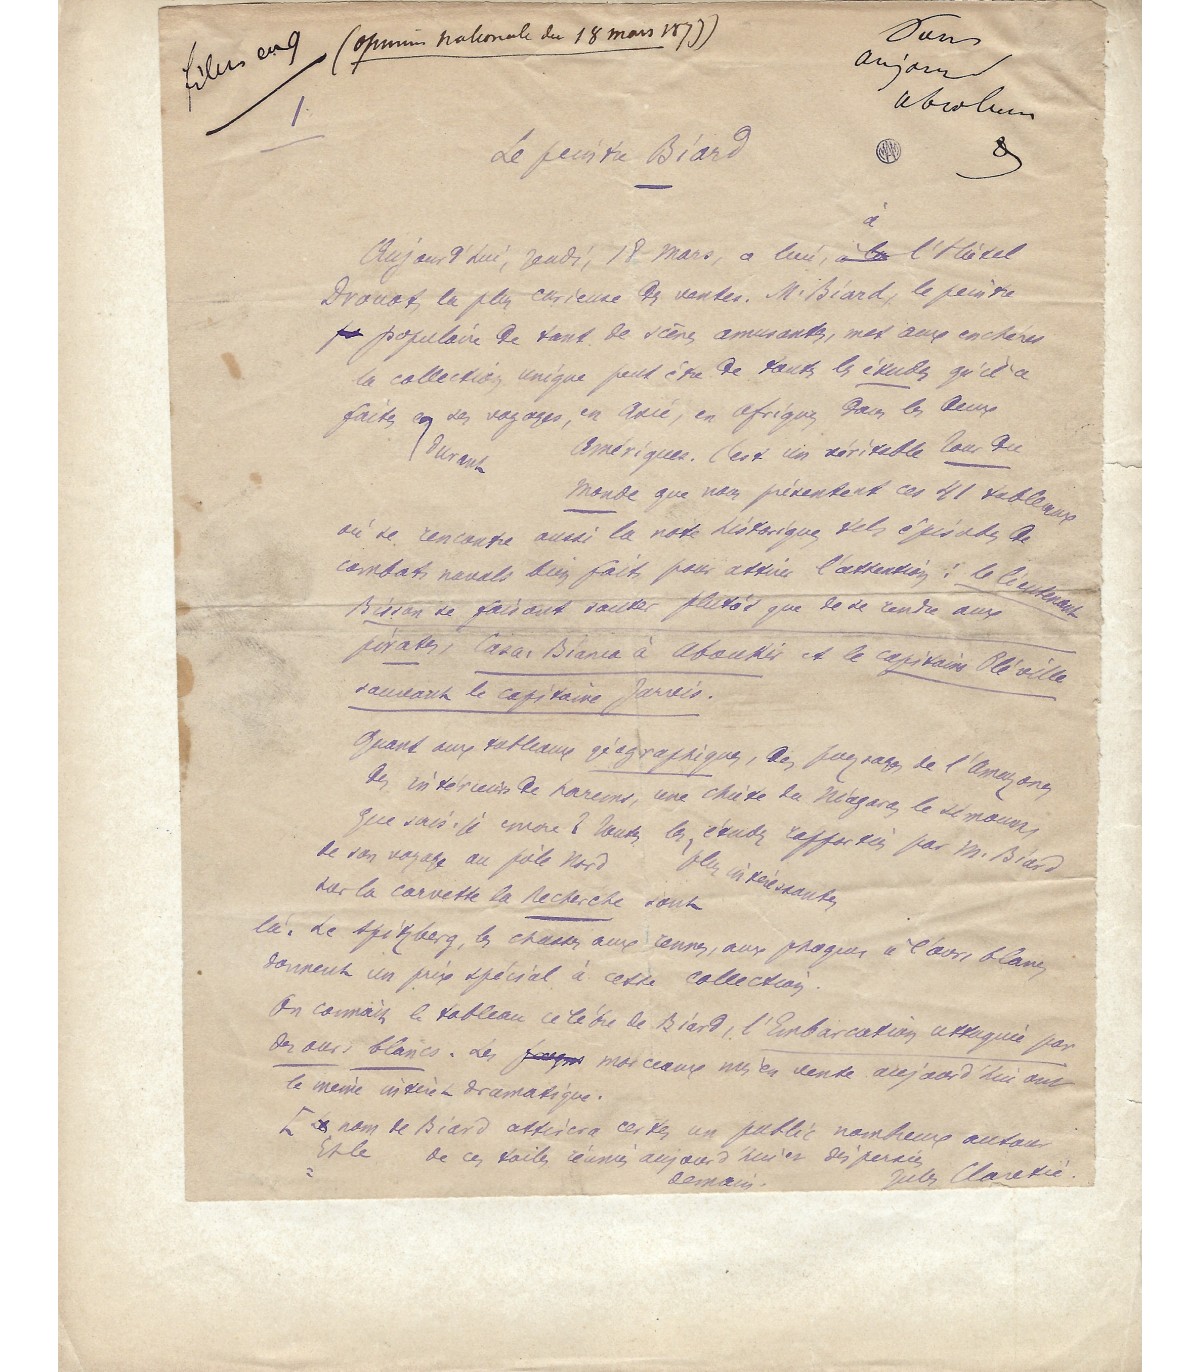 (Opinion nationale du 18 mars 1877)
filets cinq
Pour
aujourd
absolum
1
Le peintre Biard
à
Aujourd'hui, Jeudi, 18 Mars, a lieu, à la l'Hôtel
Drouot, la plus curieuse des ventes. M. Biard, le peintre
populaire de tant de scènes amusantes, met aux enchères
la collection unique peut être de toutes les études qu'il a
faites en ses voyages, en Asie, en Afrique, dans les deux
durant
Amériques. C'est un véritable Tour du
Monde que nous présentent ces 41 tableaux
où se rencontre aussi la note historique, tels épisodes de
combats navals bien faits pour attirer l'attention : le lieutenant
Bisson se faisant sauter plutôt que de se rendre aux
pirates, Casa-Bianca à Aboukir et le capitaine Pléville
sauvant le capitaine Jarvis.
Quant aux tableaux géographiques, des paysages de l'Amazone,
des intérieurs de harems, une chute du Niagara, le simoun,
que sais-je encore ? Toutes les études rapportées par M. Biard
plus intéressantes
de son voyage au pôle Nord
sur la corvette la Recherche sont
là. Le Spitzberg, les chasses aux rennes, aux phoques à l'ours blanc,
donnent un prix spécial à cette collection.
On connaît le tableau célèbre de Biard, l'Embarcation attaquée par
des ours blancs. Les morceaux mis en vente aujourd'hui ont
le même intérêt dramatique.
Le nom de Biard attirera certes un public nombreux autour
Et le
de ces toiles réunies aujourd'hui et dispersées
demain.
Jules Claretie.